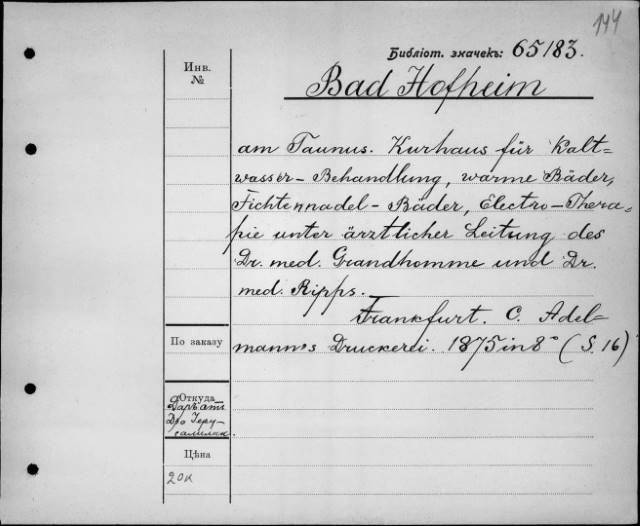 144
Библіот. значекъ: 65183.
Инв.
№
Bad Hofheim
am Taunus. Kurhaus für Kalt=
wasser-Behandlung, warme Bäder,
Fichtennadel-Bäder, Electro-Thera-
pie unter ärztlicher Leitung des
Dr. med. Grandhomme und Dr.
med. Ripps.
Frankfurt. C. Adel=
По заказу
mann's Druckerei. 1875 in 8° (S. 16)
Откуда
Даръ
Дра Іеру-
салимск.
Цѣна
20к